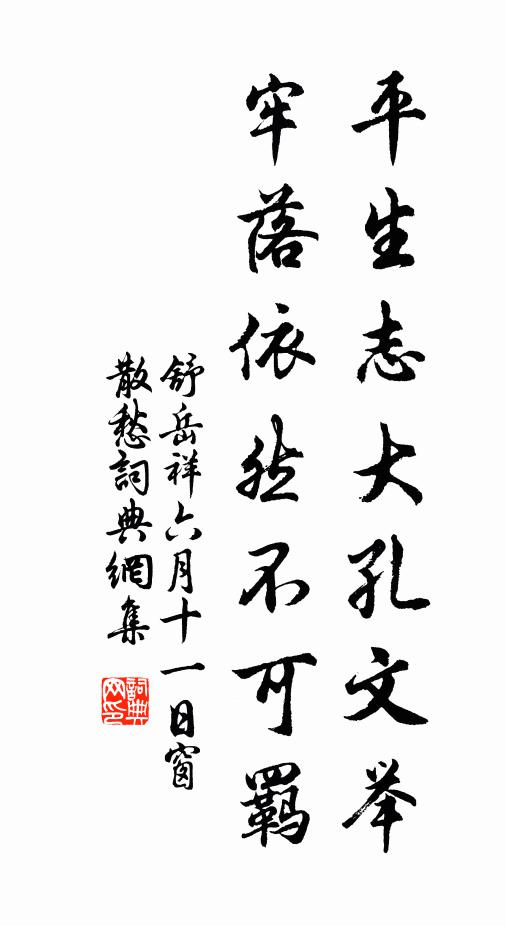 平生志大孔文举
牢落依然不可羁
舒岳祥六月十一日窗
散愁詞典網集
詞典网印